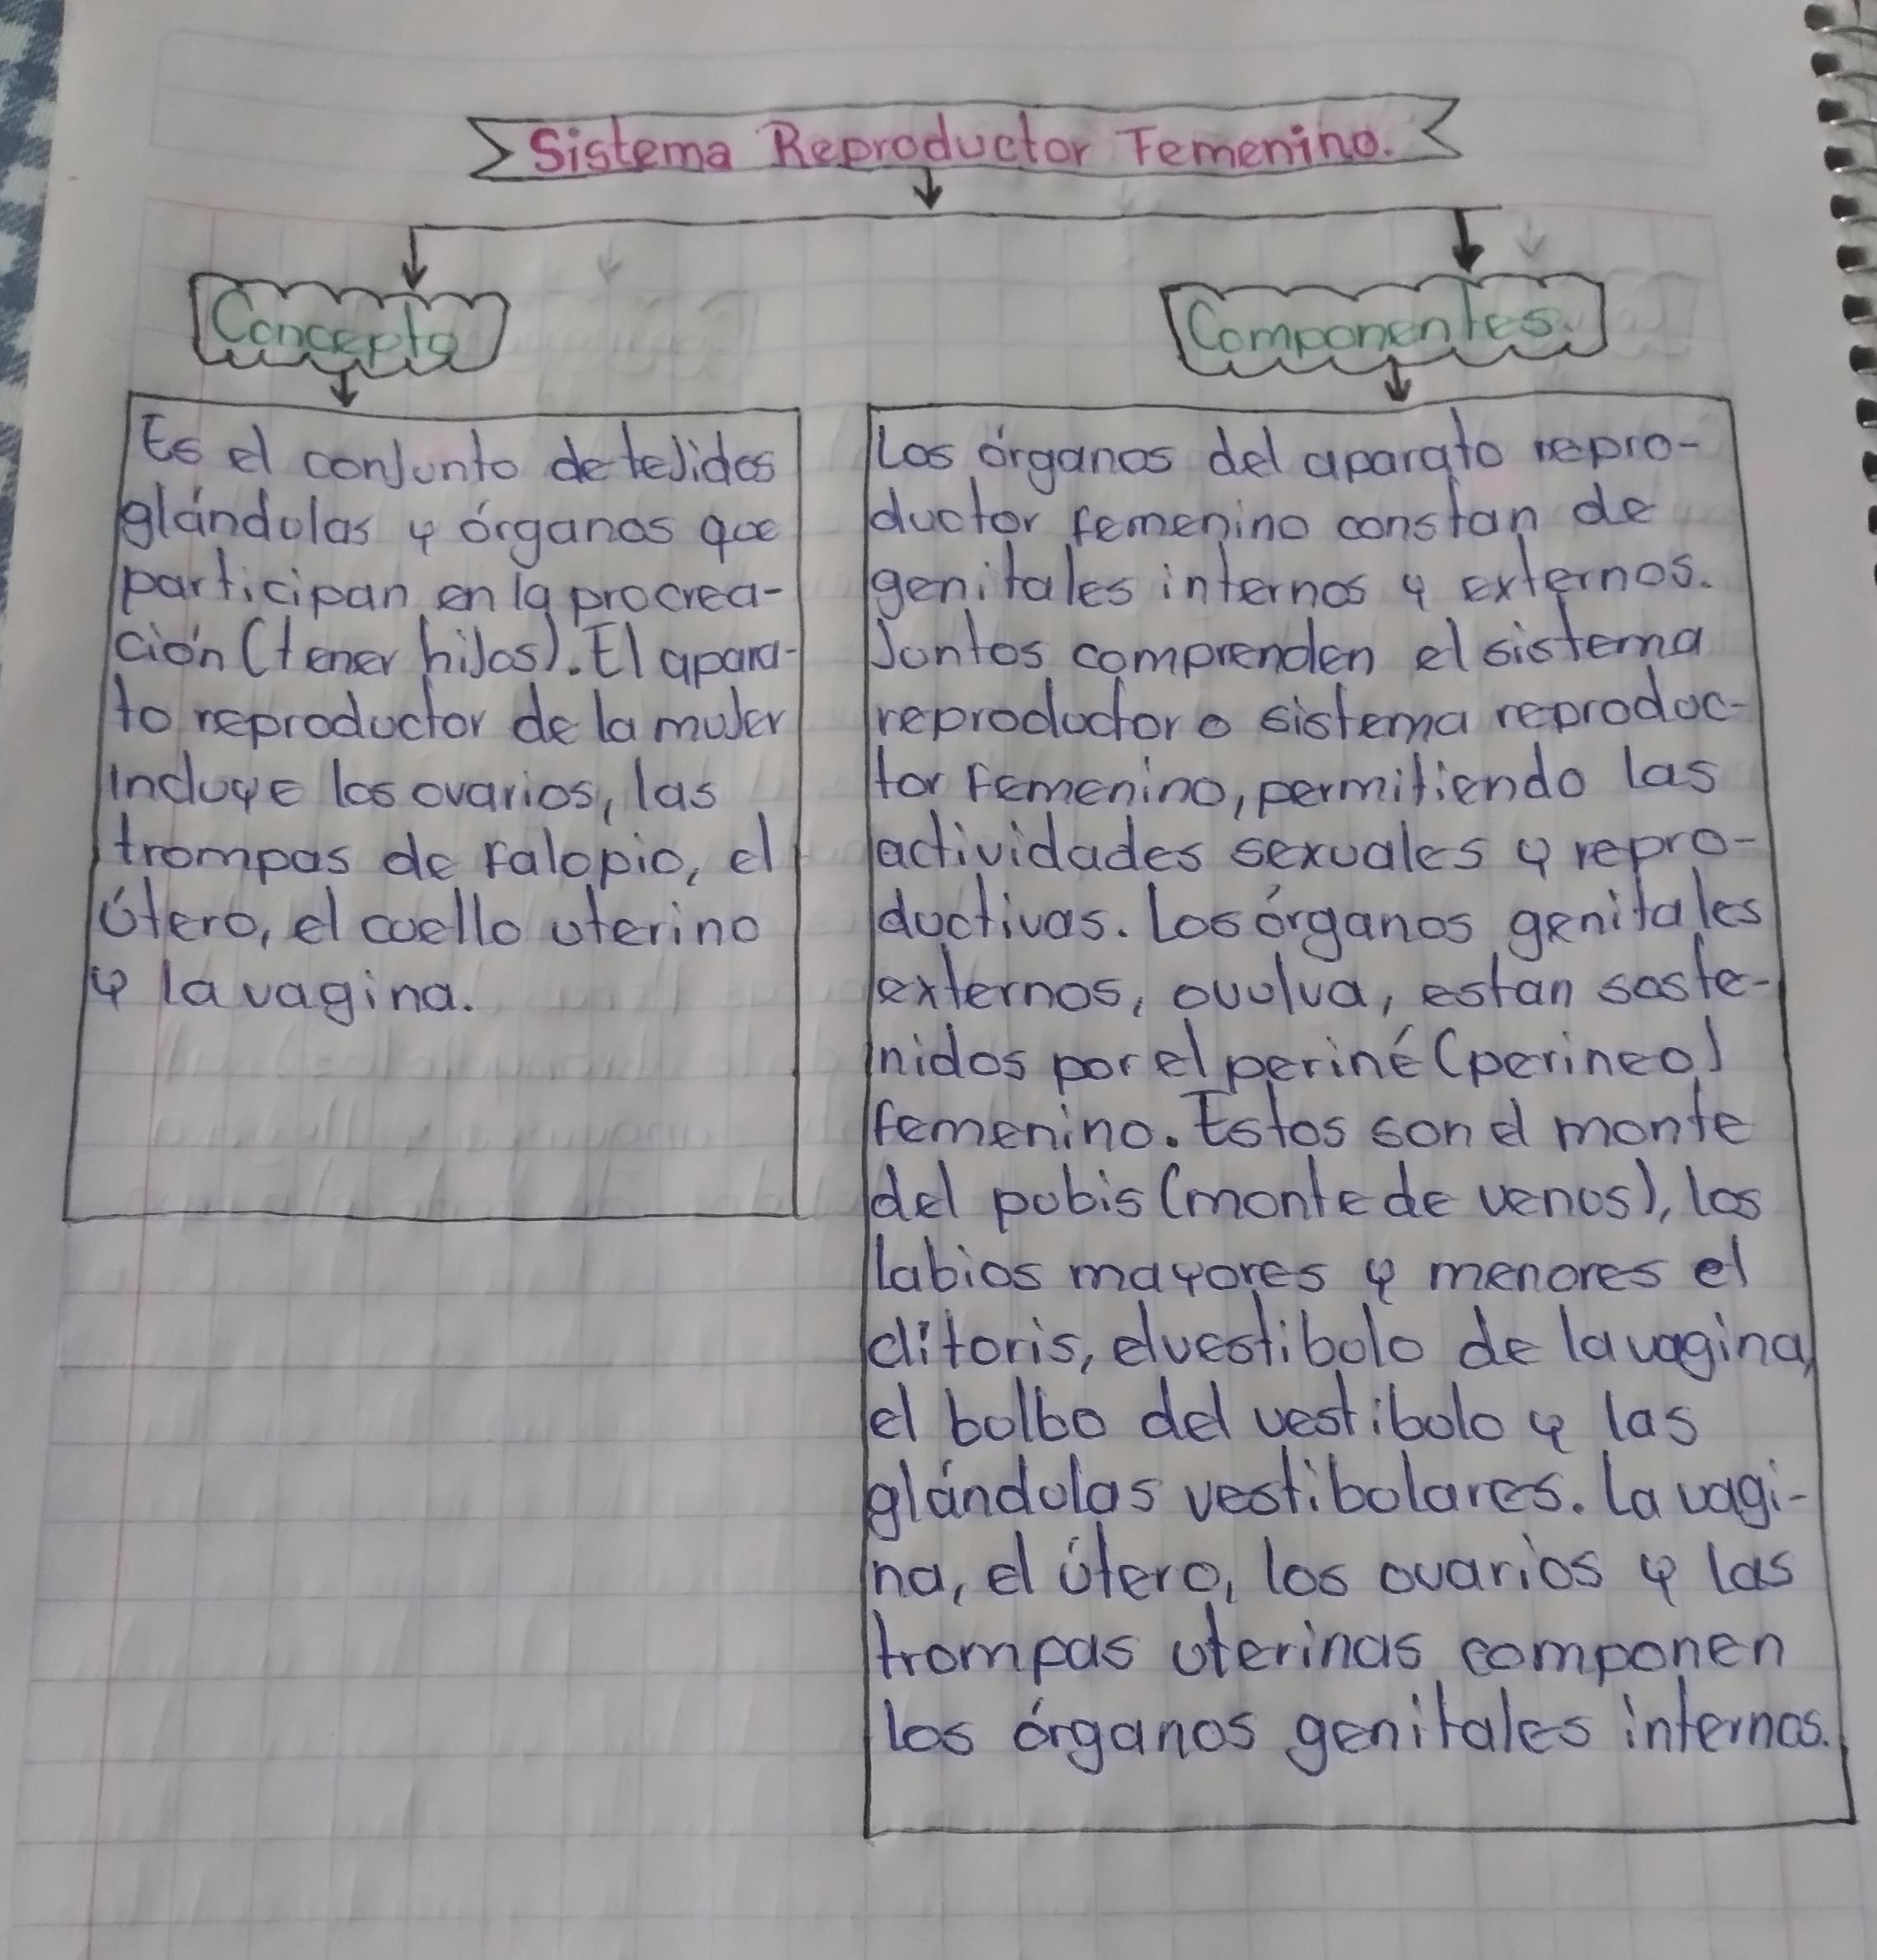 Sistema Reproductor Femenino.
Concepto
Es el conjunto de tejidos
glándulas y órganos que
participan en la procrea-
ción (tener hijos). El apara-
to reproductor de la mujer
incluye los ovarios, las
trompas de falopio, el
útero, el cuello uterino
y la vagina.
Componentes.
Los órganos del aparato repro-
ductor femenino constan de
genitales internos y externos.
Juntos comprenden el sistema
reproductor o sistema reproduc-
tor femenino, permitiendo las
actividades sexuales y repro-
ductivas. Los órganos genitales
externos, o vulva, estan soste-
nidos por el periné (perineo)
femenino. Estos son el monte
del pubis (monte de venus), los
labios mayores y menores el
clitoris, el vestibulo de la vagina,
el bulbo del vestibulo y las
glándulas vestibulares. La vagi-
na, el útero, los ovarios y las
trompas uterinas componen
los órganos genitales internos.